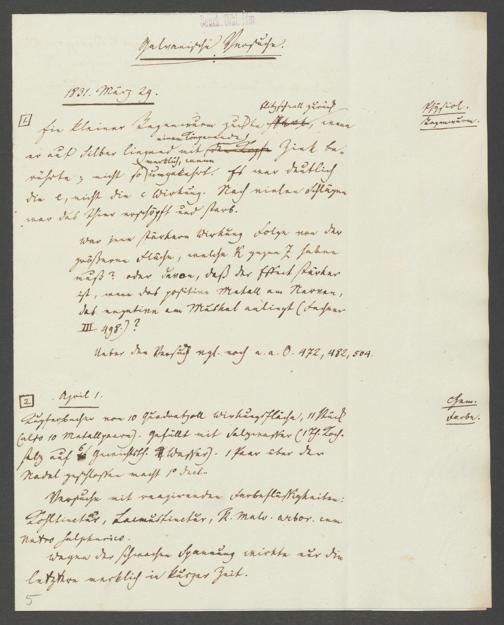 Galvanische Versuche.
1831. März 29.
Physiol.
Regenwurm.
1. Ein kleiner Regenwurm zuckte blitzschnell zurück, wenn
er auf Silber liegend mit einem Zink be-
rührte; nicht so merklich, wenn umgekehrt. Es war deutlich
die e, nicht die c Wirkung. Nach vielen Schlägen
war das Thier erschöpft und starb.
War jene stärkere Wirkung Folge von der
größeren Fläche, welche K gegen Z haben
muß? oder davon, daß der Effect stärker
ist, wenn das positive Metall am Nerven,
das negative am Muskel anliegt (Fechner
III 498.)?
Ueber den Versuch vgl. noch a. a. O. 472, 482, 504.
2. April 1.
Chem.
Farbe.
Kupferbecher von 10 Quadratzoll Wirkungsfläche, 11 Stück
(also 10 Metallpaare). Gefüllt mit Salzwasser (1 Th. Koch-
salz auf 6 Gewichtsth. Wasser). 1 Paar über der
Nadel geschlossen macht 1° decl.
Versuche mit reagirenden Farbeflüssigkeiten:
Kohltinctur, Lacmustinctur, Tt. Malv. arbor. cum
Natro sulphurico.
Wegen der schwachen Spannung wirkte nur die
letztere merklich in kurzer Zeit.
5